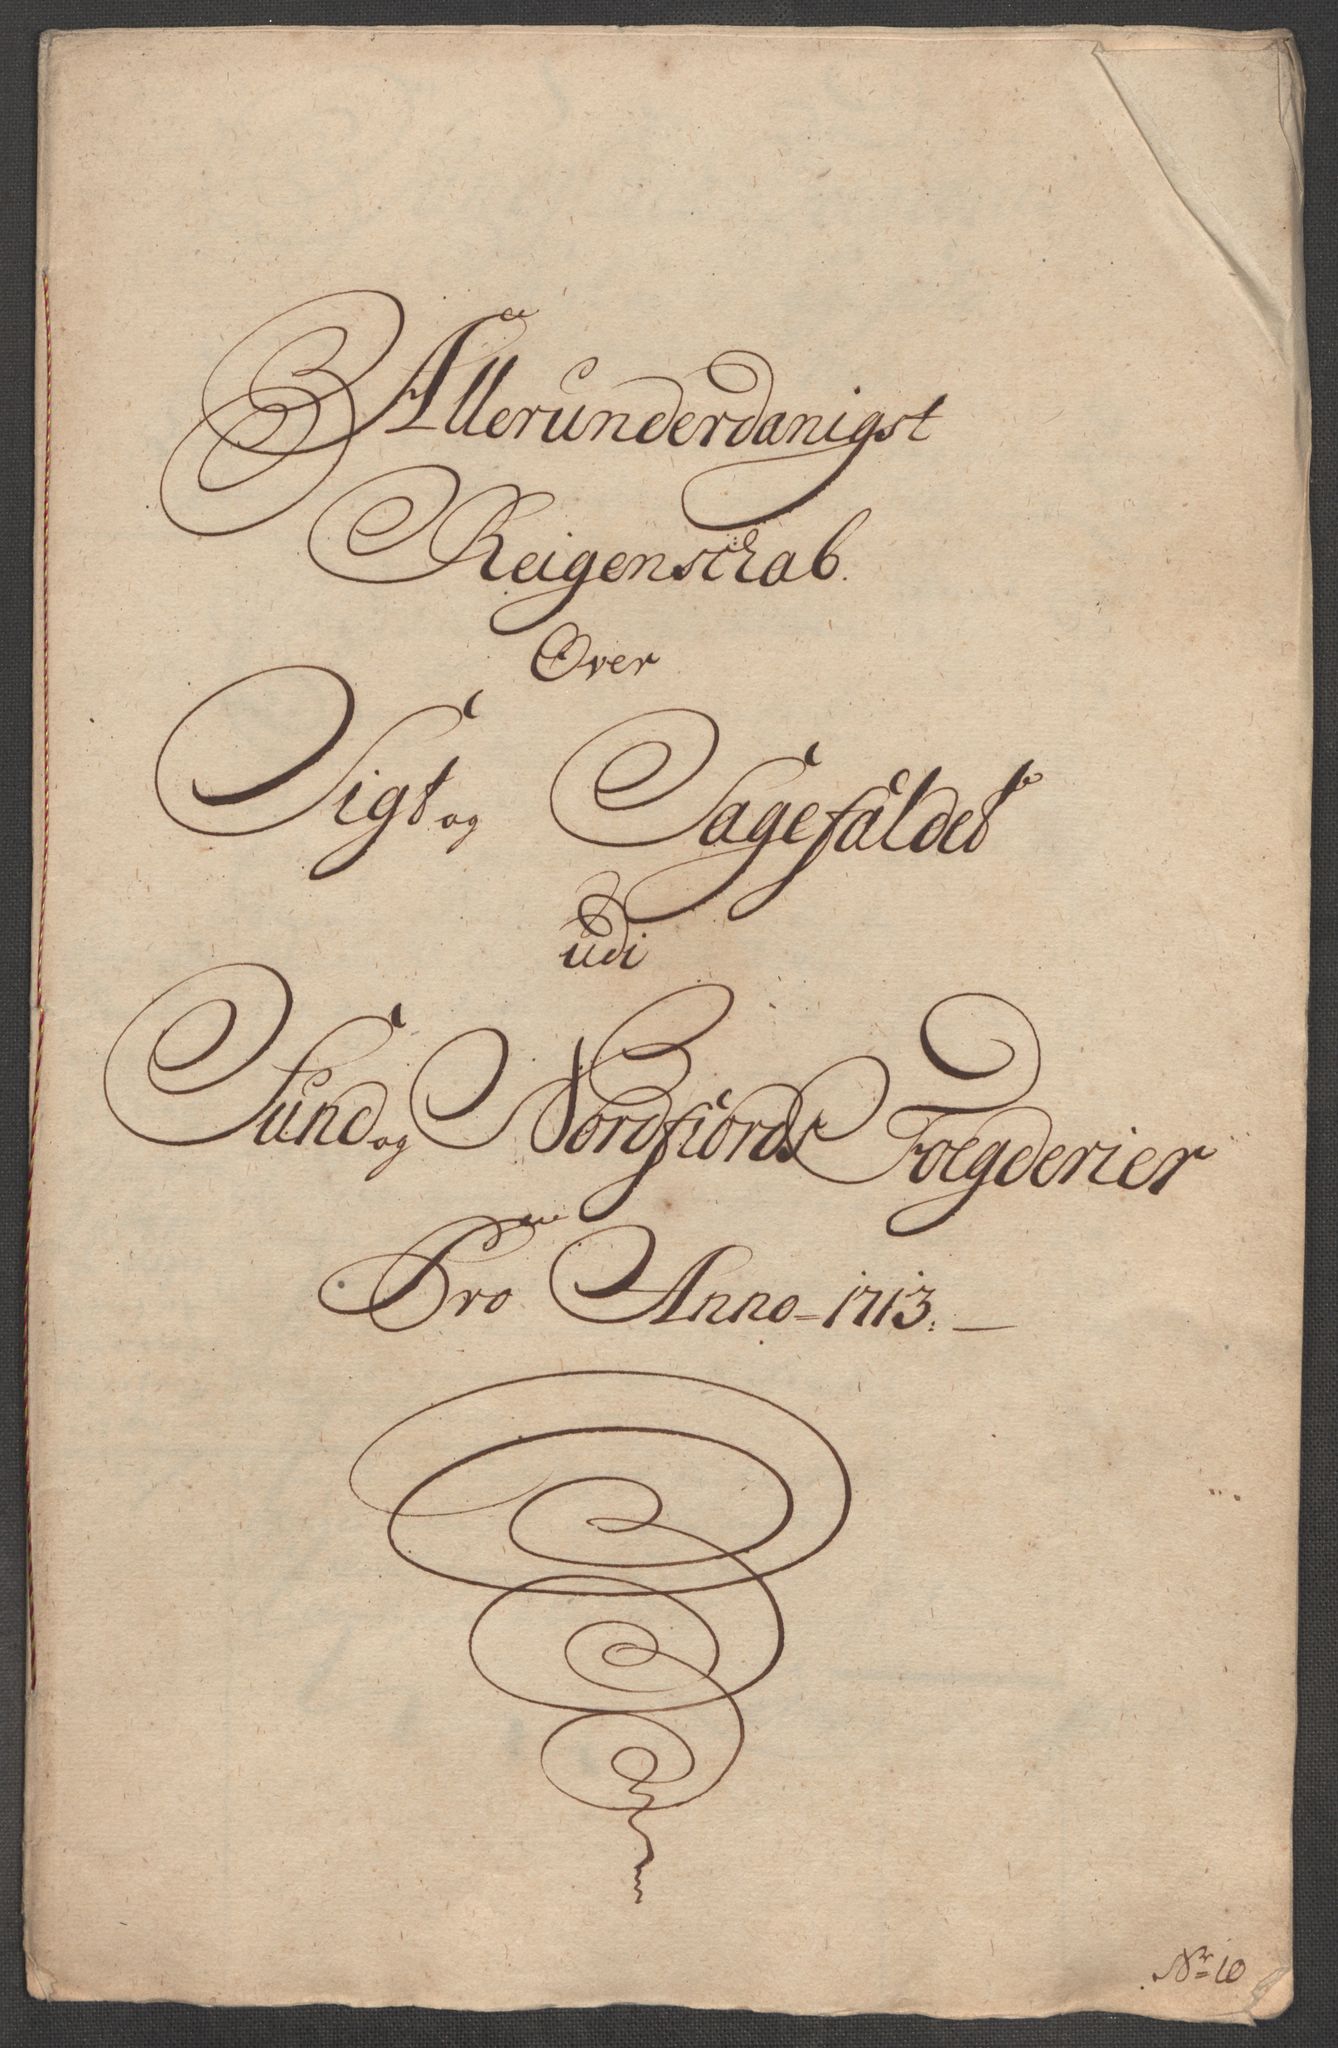 Allerunderdanigst
Reigenschab.
Over
Sigt og Sagefaldet
udi
Sund og Nordfiords Foegderier
Pro Anno 1713.
Nr 10